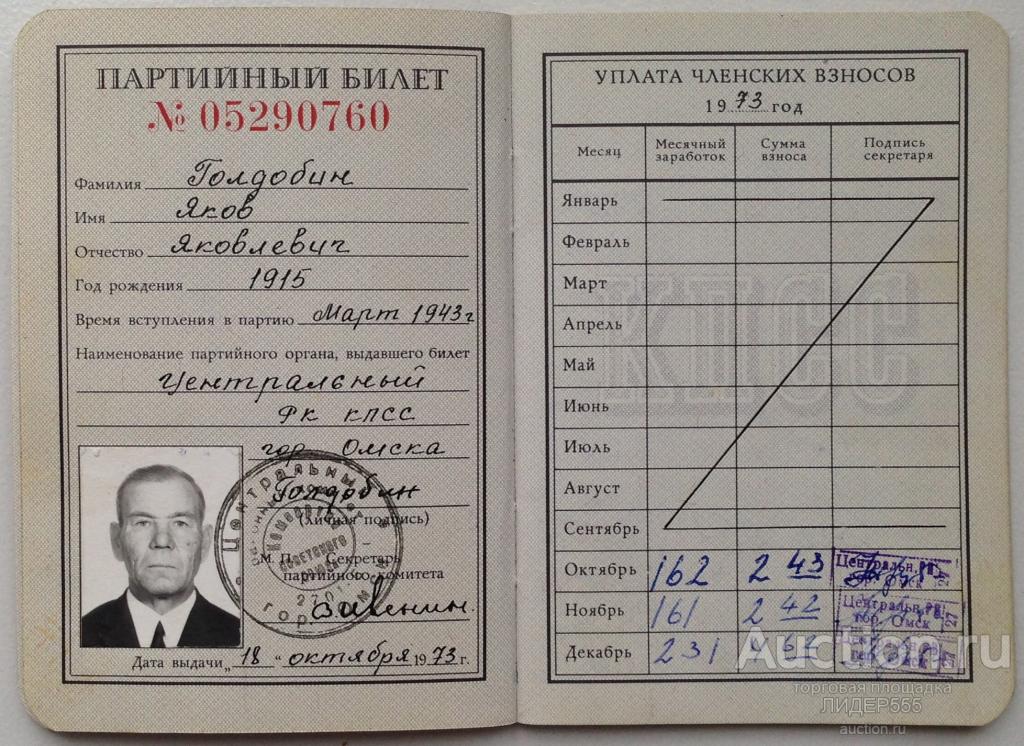 ПАРТИЙНЫЙ БИЛЕТ
№ 05290760
Фамилия Голдобин
Имя Яков
Отчество Яковлевич
Год рождения 1915
Время вступления в партию Март 1943г
Наименование партийного органа, выдавшего билет
Центральный
РК КПСС
гор Омска
Голдобин
(личная подпись)
М. П. Секретарь
партийного комитета
Дата выдачи „18“ октября 1973г.
УПЛАТА ЧЛЕНСКИХ ВЗНОСОВ
1973 год
Месяц Месячный заработок Сумма взноса Подпись секретаря
Январь
Февраль
Март
Апрель
Май
Июнь
Июль
Август
Сентябрь
Октябрь 162 2 43 Центральн. РК гор. Омск 27
Ноябрь 161 2 42 Центральн. РК гор. Омск 27
Декабрь 231
КПСС
Auction.ru
торговая площадка
ЛИДЕР555
auction.ru